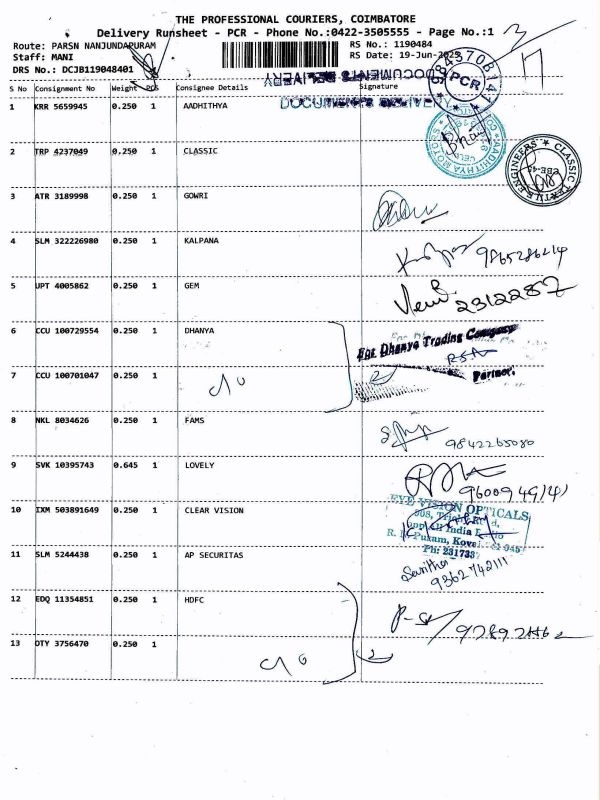 THE PROFESSIONAL COURIERS, COIMBATORE
Delivery Runsheet - PCR - Phone No.:0422-3505555 - Page No.:1
Route: PARSN NANJUNDAPURAM RS No.: 1190484
Staff: MANI RS Date: 19-Jun-2023
DRS No.: DCJB119048401
S No Consignment No Weight PCS Consignee Details Signature
DOCUMENTS DELIVERY
DOCUMENTS DELIVERY
PCR
1 KRR 5659945 0.250 1 AADHITHYA
2 TRP 4237049 0.250 1 CLASSIC
3 ATR 3189998 0.250 1 GOWRI
4 SLM 322226980 0.250 1 KALPANA
9865286214
5 UPT 4005862 0.250 1 GEM
2312287
6 CCU 100729554 0.250 1 DHANYA
For Dhanya Trading Company
Partner.
7 CCU 100701047 0.250 1
8 NKL 8034626 0.250 1 FAMS
9842265080
9 SVK 10395743 0.645 1 LOVELY
10 IXM 503891649 0.250 1 CLEAR VISION
EYE VISION OPTICALS
11 SLM 5244438 0.250 1 AP SECURITAS
9362742111
12 EDQ 11354851 0.250 1 HDFC
13 OTY 3756470 0.250 1